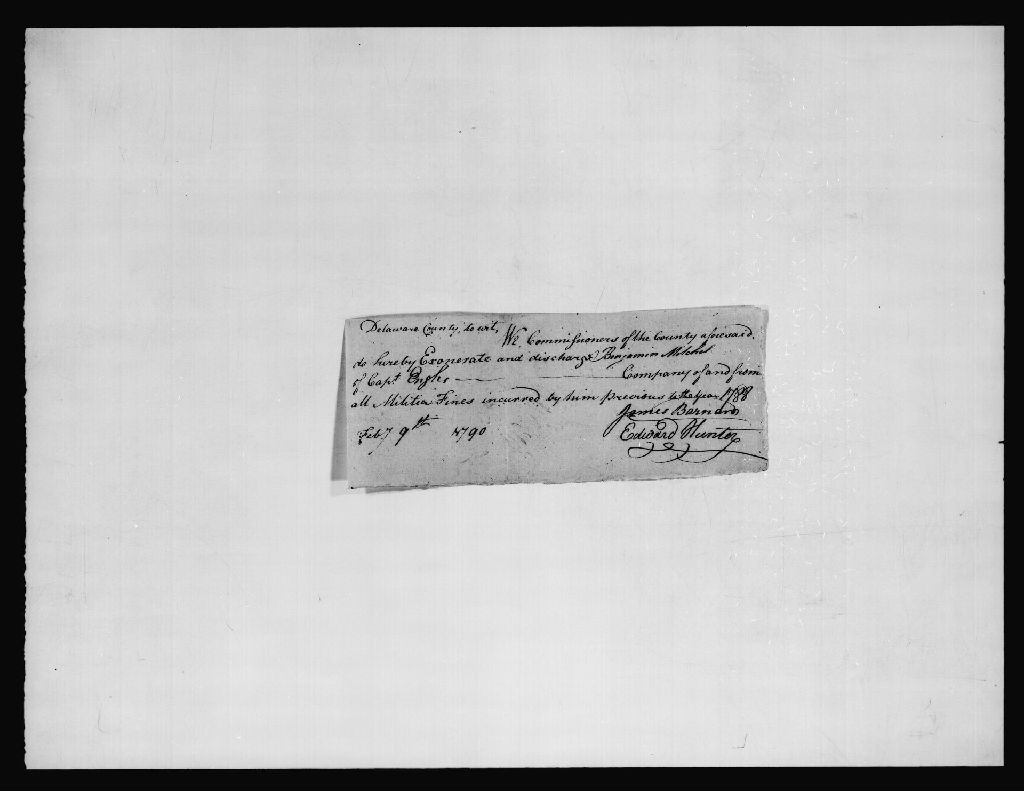 Delaware County, to wit, We Commissioners of the County aforesaid.
do hereby Exonerate and discharge Benjamin Mitchel
of Capt. Engles Company of and from
all Militia Fines incurred by him precious to the year 1788
James Barnard
Feby 9th 1790 Edward Hunter